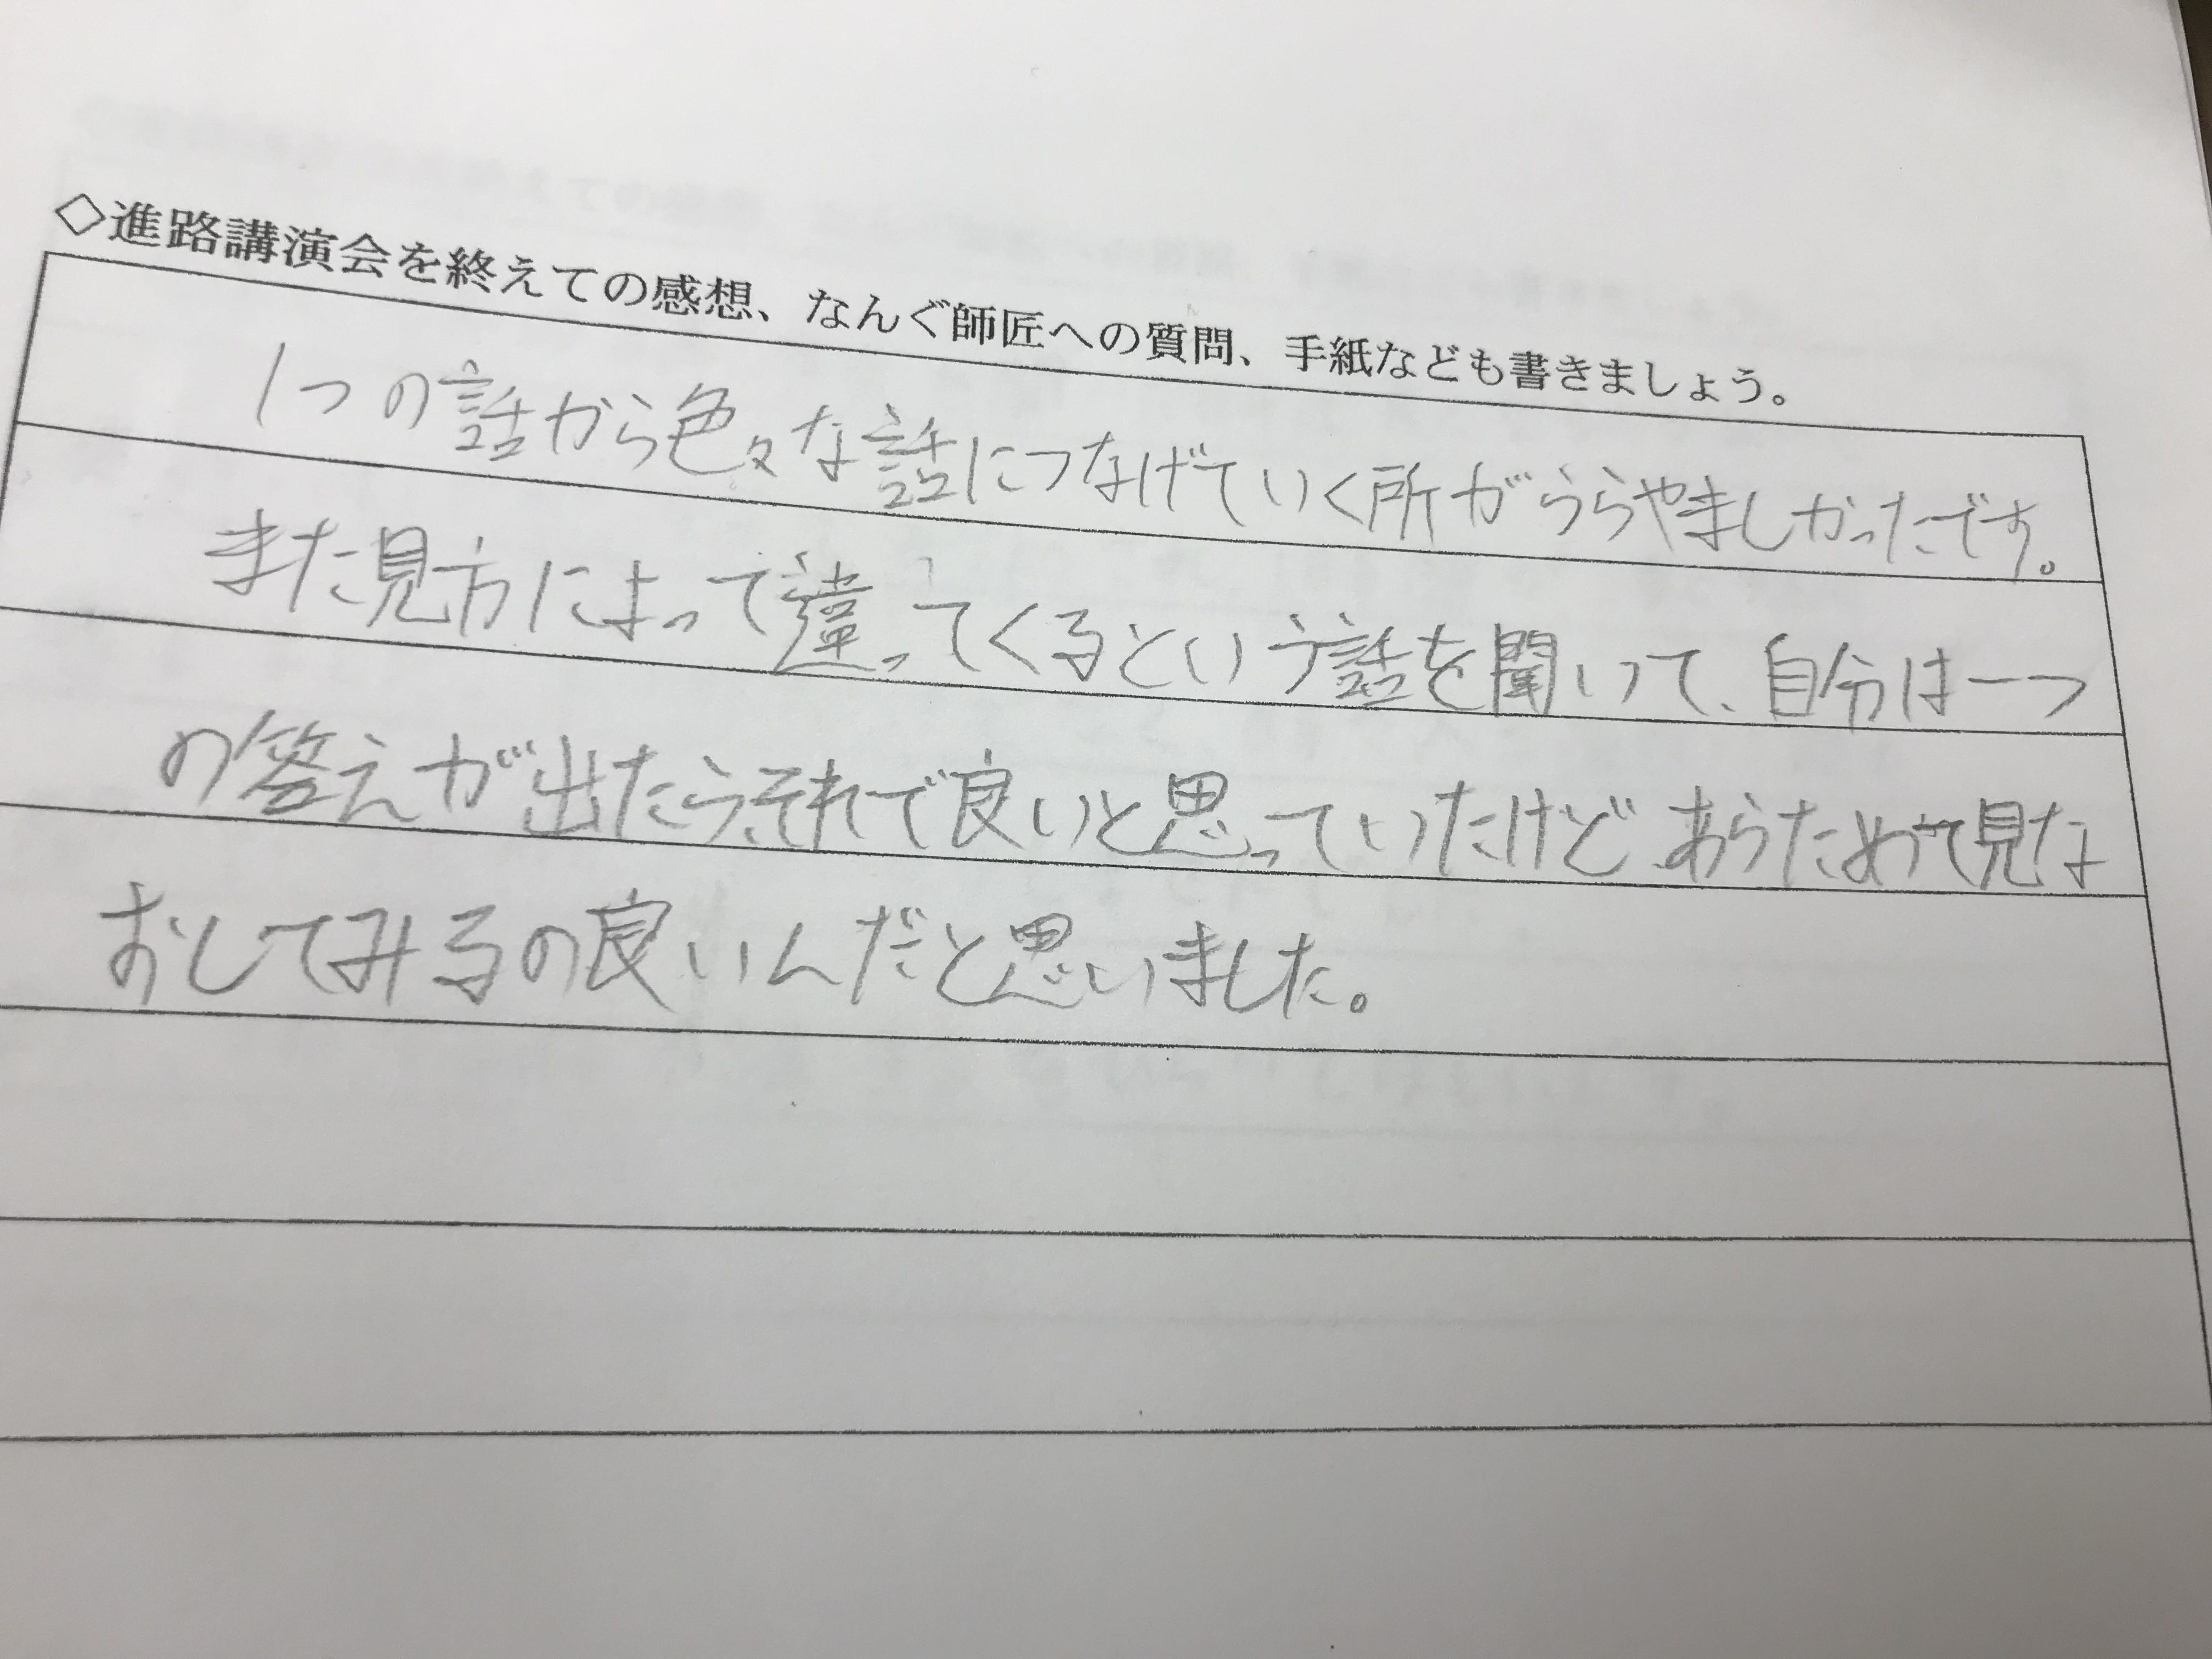 ◇進路講演会を終えての感想、なんぐ師匠への質問、手紙なども書きましょう。
1つの話から色々な話につなげていく所がうらやましかったです。
また見方によって違ってくるという話を聞いて、自分は一つ
の答えが出たら、それで良いと思っていたけど、あらためて見な
おしてみるの良いんだと思いました。